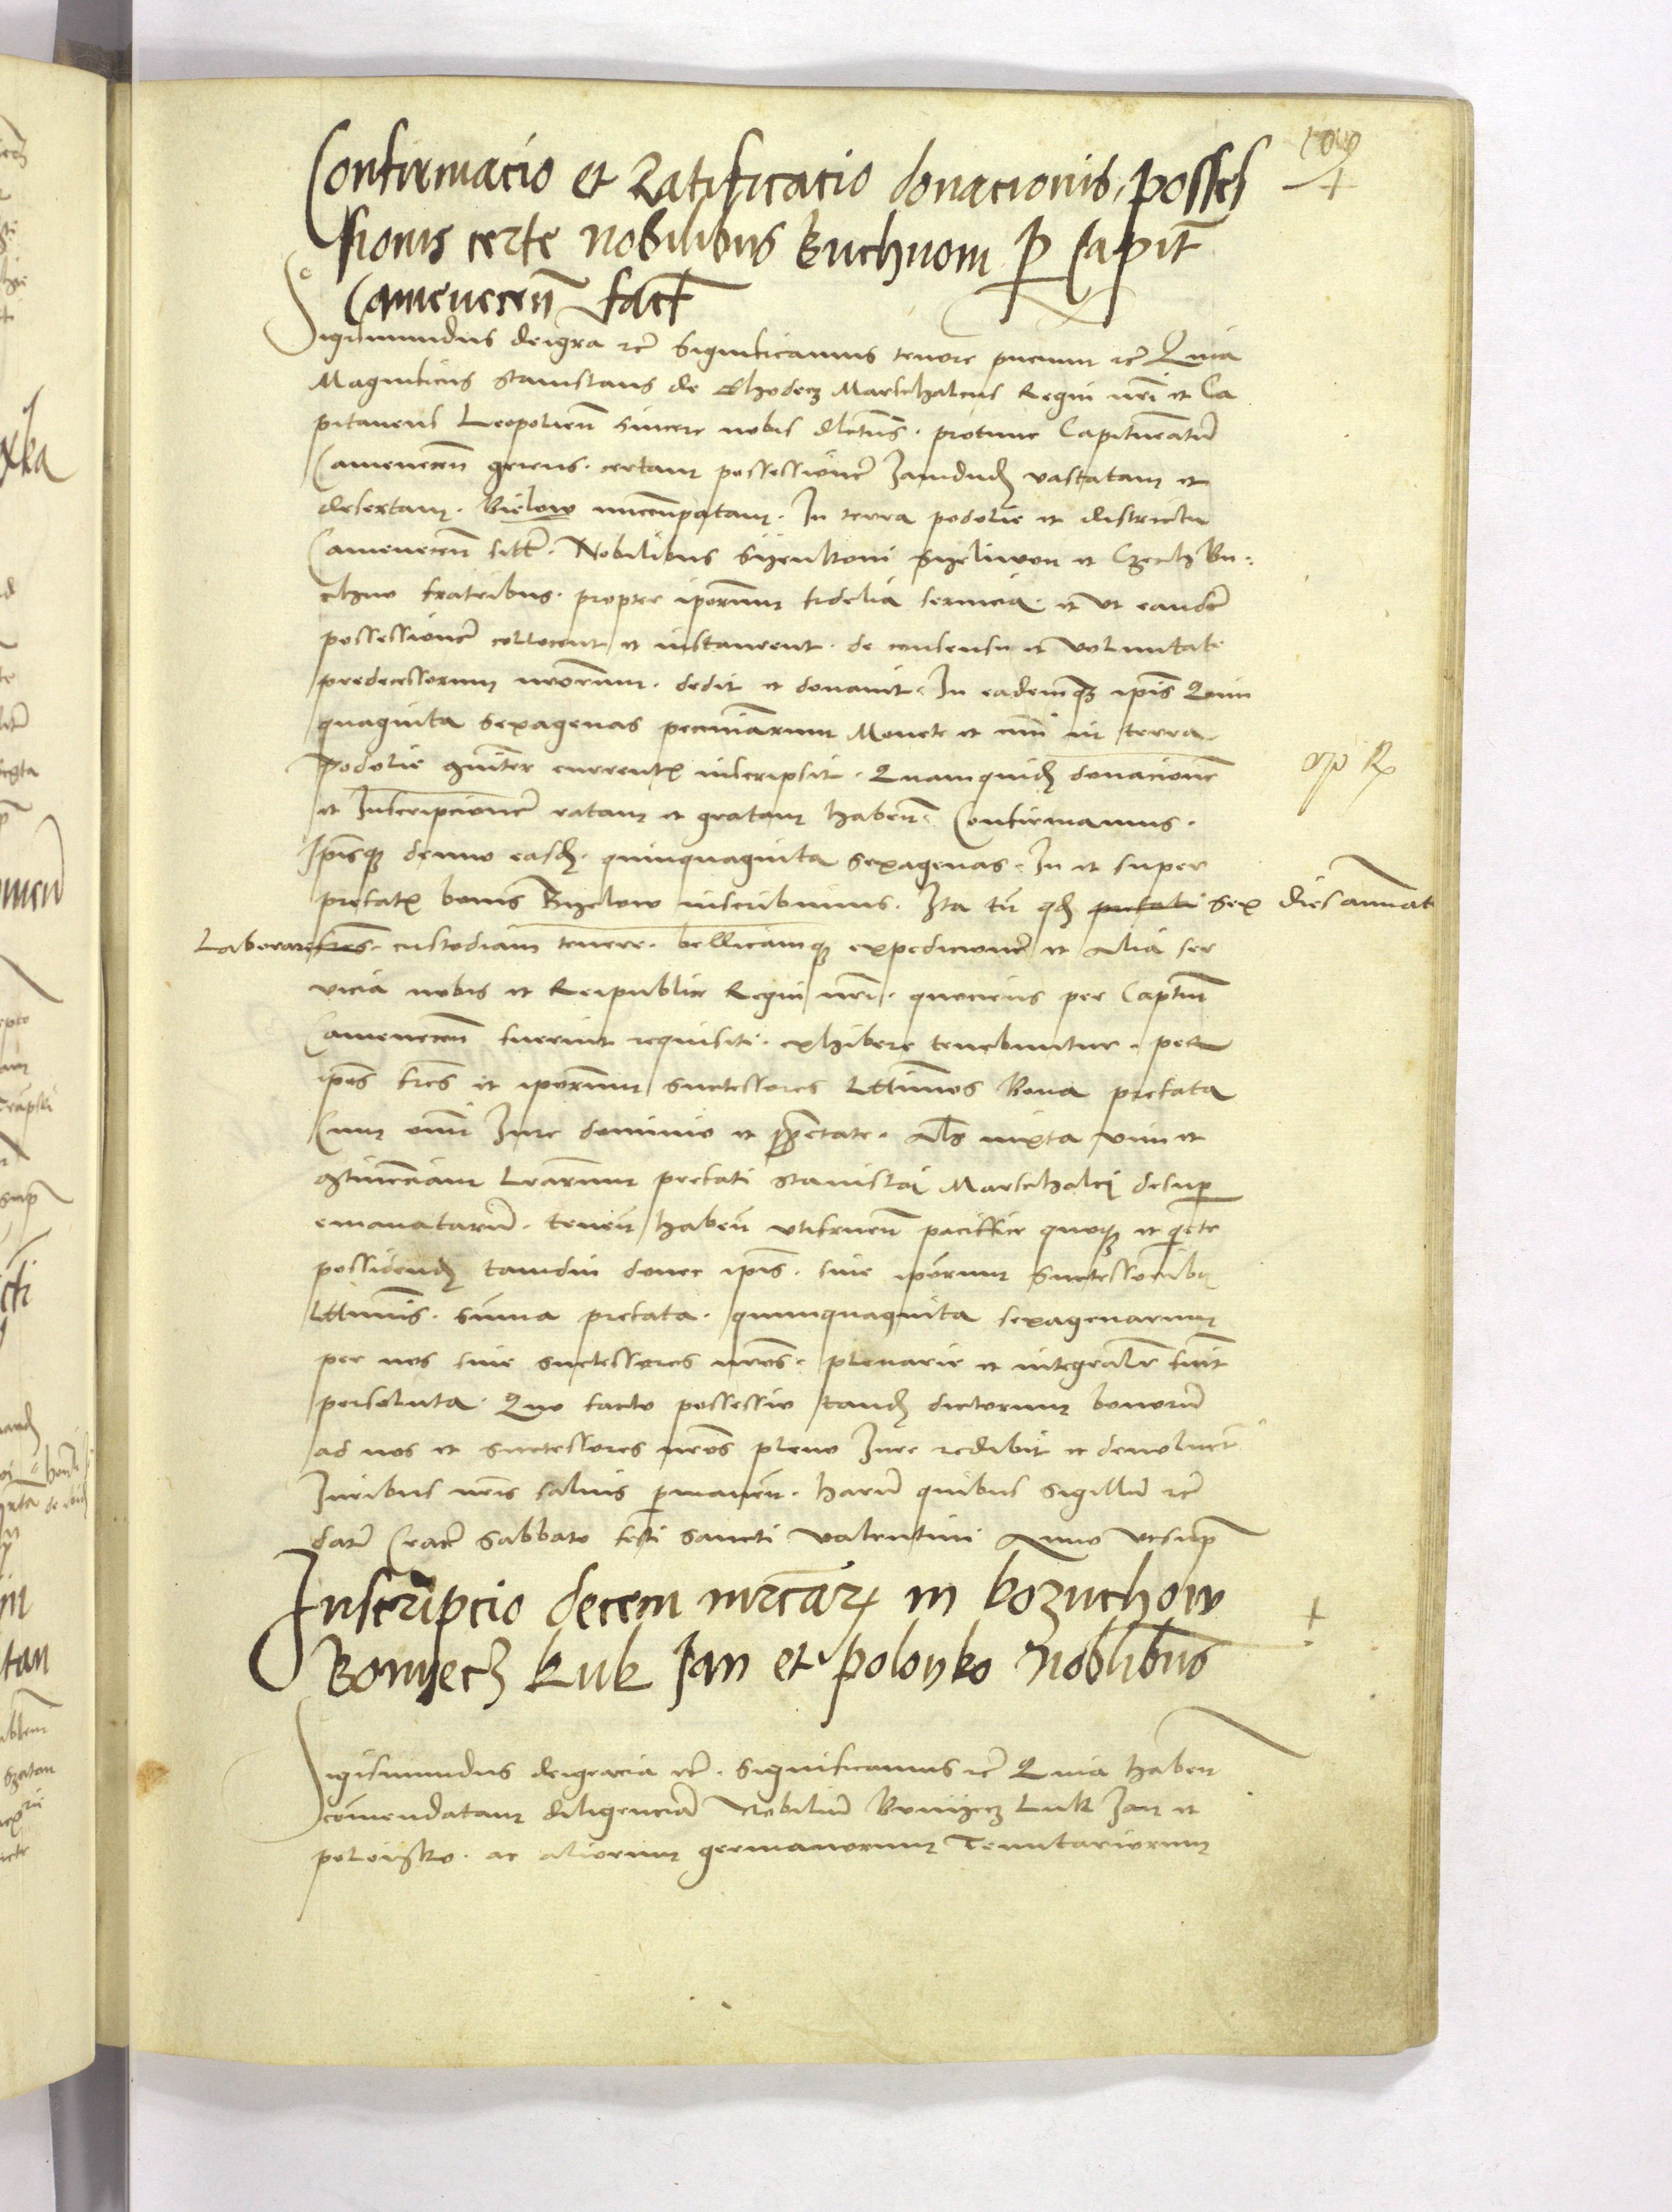 Confirmacio et Ratificacio donacionis posses
sionis certe nobilibus Buchnom p Capit
Camenecen fact
Sigismundus deigra etc Significamus tenore pncium etc Quia
Magnificus Stanislaus de Chodecz Marschalcus Regni nri et Ca
pitaneus Leopolien sincere nobis dlctus. protunc Capitneatum
Camenecen gerens. certam possessionem Jamdudum vastatam et
desertam. Bielow nuncupatam. In terra podolie et districtu
Camenecen sitam. Nobilibus et Czech Bu
chno fratribus. propter ipsorum fidelia servicia. et ut eandem
possessionem collocent et instaurent. de consensu et voluntate
predecessorum nrorum. dedit et donavit. In eademque ipsis Quin
quaginta sexagenas pecuniarum Monete et nri in terra
podolie coniter currentis inscripsit. Quamquidem donacionem
et Inscripcionem ratam et gratam haben. Confirmamus.
Ipisque denuo easdem. quinquaginta sexagenas. In et super
prefatis bonis Byelow inscribimus. Ita tn qd prefati sex dies annat
Laborare fres. custodiam tenere. bellicamque expedicionem et alia ser
vicia nobis et Reipublice Regni nri. quociens per Captum
Camenecen fuerint requisiti. exhibere tenebuntur. per
ipos fres et iporum successores Lttimos Bona prefata
Cum omni Jure dominio et pprietate. Als iuxta vim et
continenciam Lrarum prefati Stanislai Marschalci desup
emanatarum. tenen haben utifruen pacifice quoque et qete
possidend tamdiu donec ipis. sive iporum successoribus
Lttimis. summa prefata. quinquaginta sexagenarum
per nos sive successores nros. plenarie et integraliter fuit
persoluta. Quo facto possessio tand dictorum bonorum
ad nos et successores nros pleno Jure redibit et devoluet
Juribus nris salvis permanen. harum quibus sigillum etc
datum Crac Sabbato festi sancti Valentini Anno utsup
Inscripcio decem mrcar in Kozuchow
Bonyecz Luk Jan et polonko Noblibus
Sigismundus deigracia etc. Significamus etc Quia haben
comendatam diligenciam Nobilium Bonyecz Luk Jan et
ac aliorum germanorum Tenutariorum